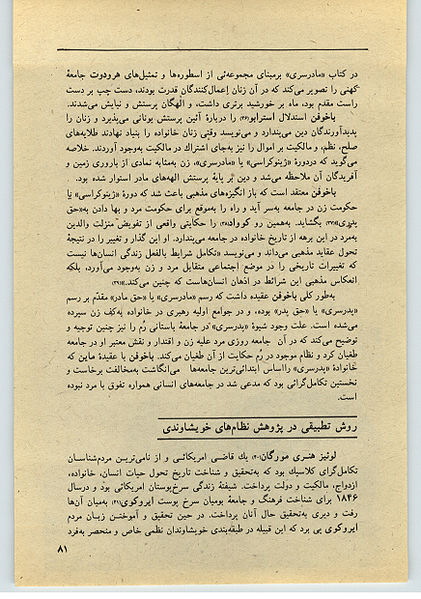 در کتاب «مادرسری» برمبنای مجموعه‌ئی از اسطوره‌ها و تمثیل‌های هرودوت جامعهٔ
کهنی را تصویر می‌کند که در آن زنان اِعمال‌کنندگان قدرت بودند، دست چپ بر دست
راست مقدم بود، ماه بر خورشید برتری داشت، و الهگان پرستش و نیایش می‌شدند.
باخوفن استدلال استرابو(۳۶) را دربارهٔ آئین پرستش یونانی می‌پذیرد و زنان را
پدیدآورندگان دین می‌پندارد و می‌نویسد وقتی زنان خانواده را بنیاد نهادند طلایه‌های
صلح، نظم، و مالکیت بر اموال را نیز به‌جای اشتراك در مالکیت به‌وجود آوردند. خلاصه
می‌گوید که دردورهٔ «ژینوکراسی» یا «مادرسری»، زن به‌مثابه نمادی از باروری زمین و
آفریدگان آن ملاحظه می‌شد و دین بر پایهٔ پرستش الهه‌های مادر استوار شده بود.
باخوفن معتقد است که باز انگیزه‌های مذهبی باعث شد که دورهٔ «ژینوکراسی» یا
حکومت زن در جامعه به‌سر آید و راه را به‌موقع برای حکومت مرد و بها دادن به«حق
پدری»(۳۷) بگشاید. به‌همین رو کوواد(۳۸) را حکایتی واقعی از تفویض منزلت والدین
به‌مرد در این برهه از تاریخ خانواده در جامعه می‌پندارد. او این گذار و تغییر را در نتیجهٔ
تحول عقاید مذهبی می‌داند و می‌نویسد «تکامل شرایط بالفعل زندگی انسان‌ها نیست
که تغییرات تاریخی را در موضع اجتماعی متقابل مرد و زن به‌وجود می‌آورد، بلکه
انعکاس مذهبی این شرائط در اذهان انسان‌هاست که چنین می‌کند.»(۳۹)
به‌طور کلی باخوفن عقیده داشت که رسم «مادرسری» یا «حق مادر» مقدّم بر رسم
«پدرسری» یا «حق پدر» بوده، و در جوامع اولیه رهبری در خانواده به‌کف زن سپرده
می‌شده است. علت وجود شیوهٔ «پدرسری» در جامعهٔ باستانی رُم را نیز چنین توجیه و
توضیح می‌کند که در آن جامعه روزی مرد علیه زن و اقتدار و نقش معتبر او در جامعه
طغیان کرد و نظام موجود در رُم حکایت از آن طغیان می‌کند. باخوفن با عقیدهٔ ماین که
خانوادهٔ «پدرسری» رااساس ابتدائی‌ترین جامعه‌ها می‌انگاشت به‌مخالفت برخاست و
نخستین تکامل‌گرائی بود که مدعی شد در جامعه‌های انسانی همواره تفوق با مرد نبوده
است.
روش تطبیقی در پژوهش نظام‌های خویشاوندی
لوئیز هنری مورگان(۴۰)، یك قاضی امریکائی و از نامی‌ترین مردم‌شناسان
تکامل‌گرای کلاسیك بود که به‌تحقیق و شناخت تاریخ تحول حیات انسان، خانواده،
ازدواج، مالکیت و دولت پرداخت. شیفتهٔ زندگی سرخ‌پوستان امریکائی بود و درسال
۱۸۴۶ برای شناخت فرهنگ و جامعهٔ بومیان سرخ پوست ایروکوی(۴۱) به‌میان آن‌ها
رفت و دیری به‌تحقیق حال آنان پرداخت. در حین تحقیق و آموختن زبان مردم
ایروکوی پی برد که این قبیله در طبقه‌بندی خویشاوندان نظمی خاص و منحصر به‌فرد
۸۱